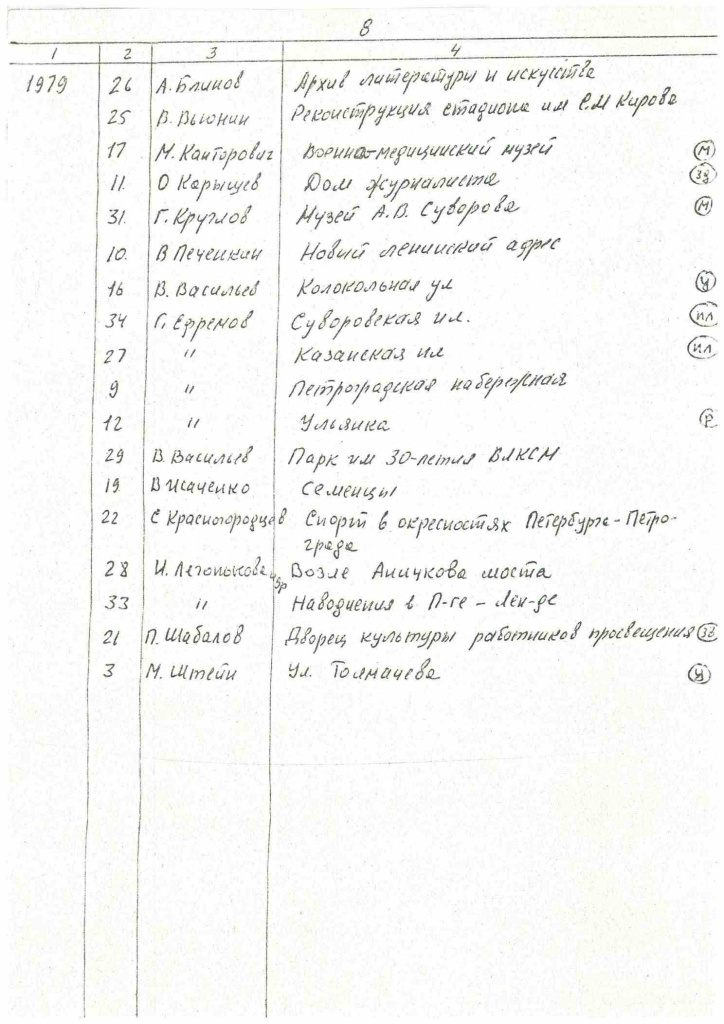 8
1 2 3 4
1979 26 А. Блинов Архив литературы и искусства
25 В. Вьюнин Реконструкция стадиона им С.М Кирова
17 М. Канторович Военно-медицинский музей М
11. О Карышев Дом журналиста зд
31. Г. Круглов Музей А.В. Суворова М
10. В Печенкин Новый ленинский адрес
16 В. Васильев Колокольная ул У
34 Г. Ефремов Суворовская пл. пл
27 " Казанская пл пл
9 " Петроградская набережная
12 " Ульянка Р
29 В. Васильев Парк им 30-летия ВЛКСМ
19. В Исаченко Семенцы
22 С Красногородцев Спорт в окресностях Петербурга-Петро-
града
28 И. Легонькова и др Возле Аничкова моста
33 " Наводнения в П-ге - Лен-де
21 П. Шабалов Дворец культуры работников просвещения зд
3 М. Штейн Ул. Толмачева У